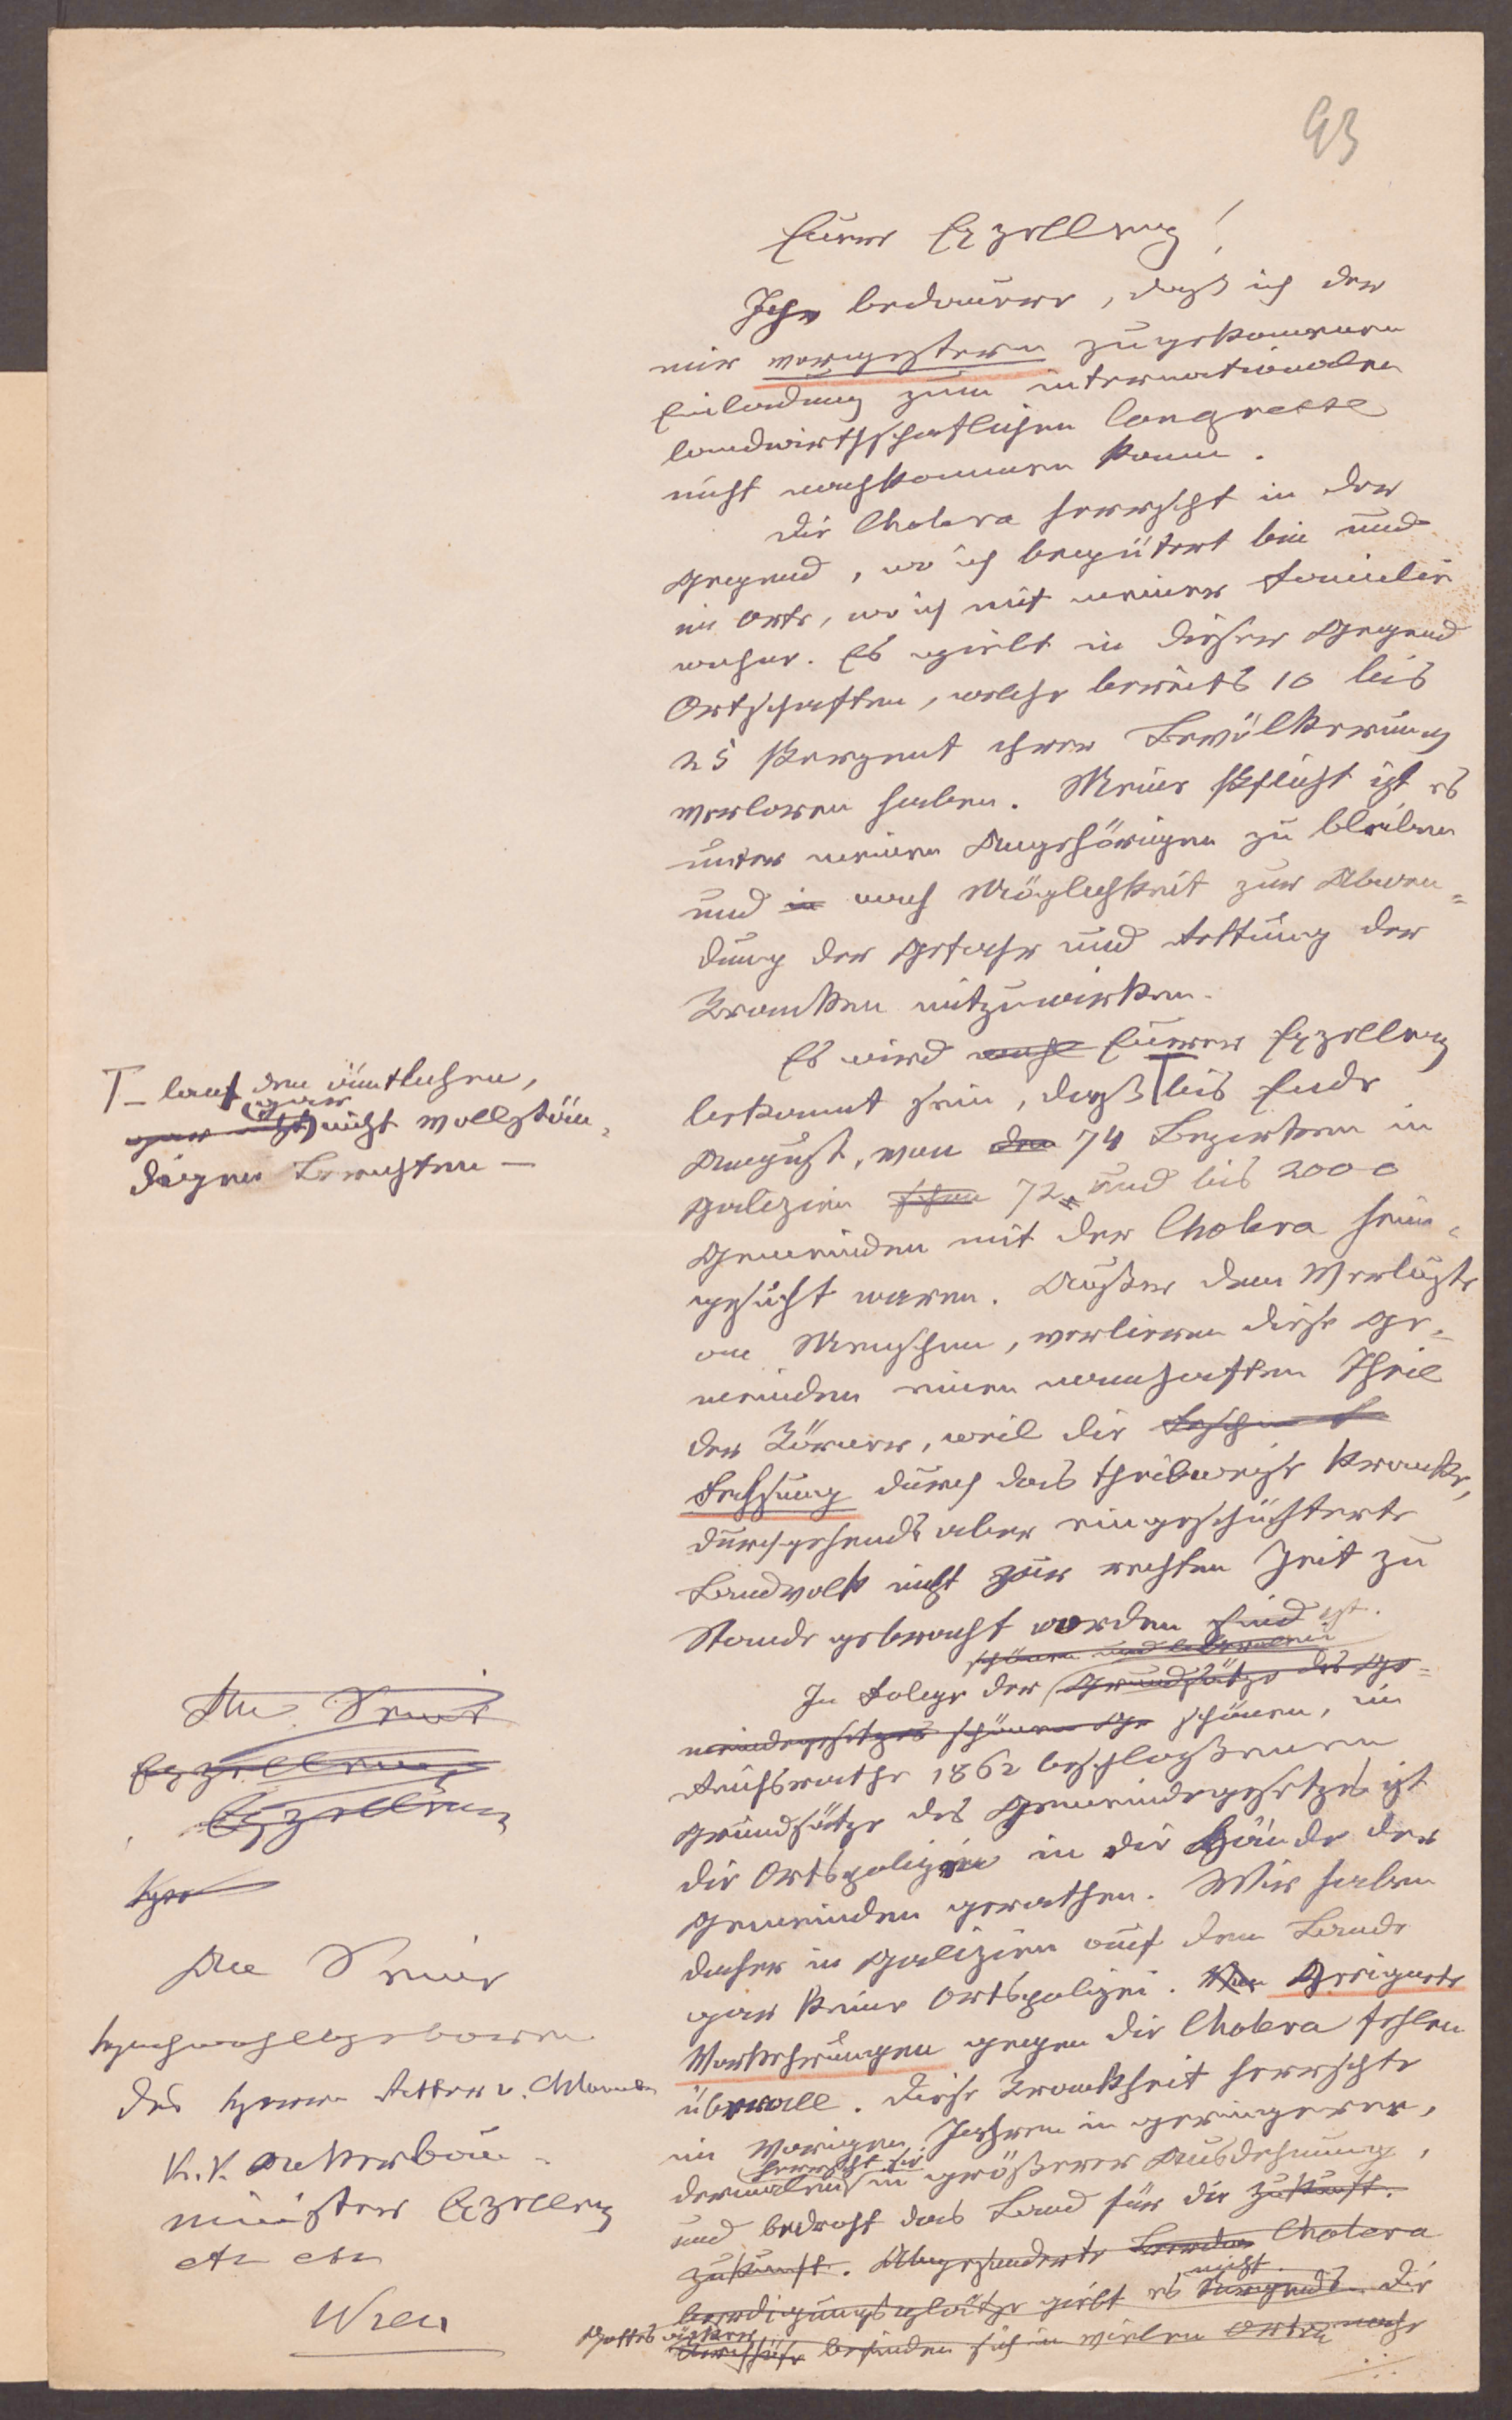 93
Eurer Exzellenz!
Ich bedauere, daß ich der
mir vorgestern zugekommenen
Einladung zum internationalen
landwirthschaftlichen Congresse
nicht nachkommen kann.
Die Cholera herrscht in der
Gegend, wo ich begütert bin und
im Orte, wo ich mit meiner Familie
wohne. Es giebt in dieser Gegend
Ortschaften, welche bereits 10 bis
25 Perzent ihrer Bevölkerung
verloren haben. Meine Pflicht ist es
unter meinen Angehörigen zu bleiben
und in nach Möglichkeit zur Abwen=
dung der Gefahr und Rettung der
Kranken mitzuwirken.
Es wird wohl Eurer Exzellenz
bekannt sein, daß T bis Ende
August, von den 74 Bezirken in
Galizien schon 72, und bis 2000
Gemeinden mit der Cholera heim=
gesucht waren. Außer dem Verluste
an Menschen, verlieren diese Ge=
meinden einen namhaften Theil
der Körner, weil die
Fechsung durch das theilweise kranke,
durchgehends aber eingeschüchterte
Landvolk nicht zur rechten Zeit zu
Stande gebracht worden sind ist.
schönen und liberalen
In Folge der Grundsätze des Ge=
meindegesetzes schönen Ge schönen, im
Reichsrathe 1862 beschloßenen
Grundsätze des Gemeindegesetzes ist
die Ortspolizei in die Hände der
Gemeinden gerathen. Wir haben
daher in Galizien auf dem Lande
gar keine Ortspolizei. Geeignete
Vorkehrungen gegen die Cholera fehlen
überall. Diese Krankheit herrschte
im vorigen Jahren in geringerer,
dermalen herrscht sie in größerer Ausdehnung,
und bedroht das Land für die Zukunft.
Zukunft. Abgesonderte Cholera
beerdigungsplätze giebt es nirgends nicht. Die
Gottesäcker Kirchhöfe befinden sich in vielen Orten nahe
T – laut den ämtlichen,
gar nicht vollstän=
digen Berichten –
An Seine
Exzellenz
Exzellenz
An Seine
Hochwohlgeboren
des Herrn Ritter v.
k. k. Ackerbau=
minister Exzellenz
etc etc
Wien